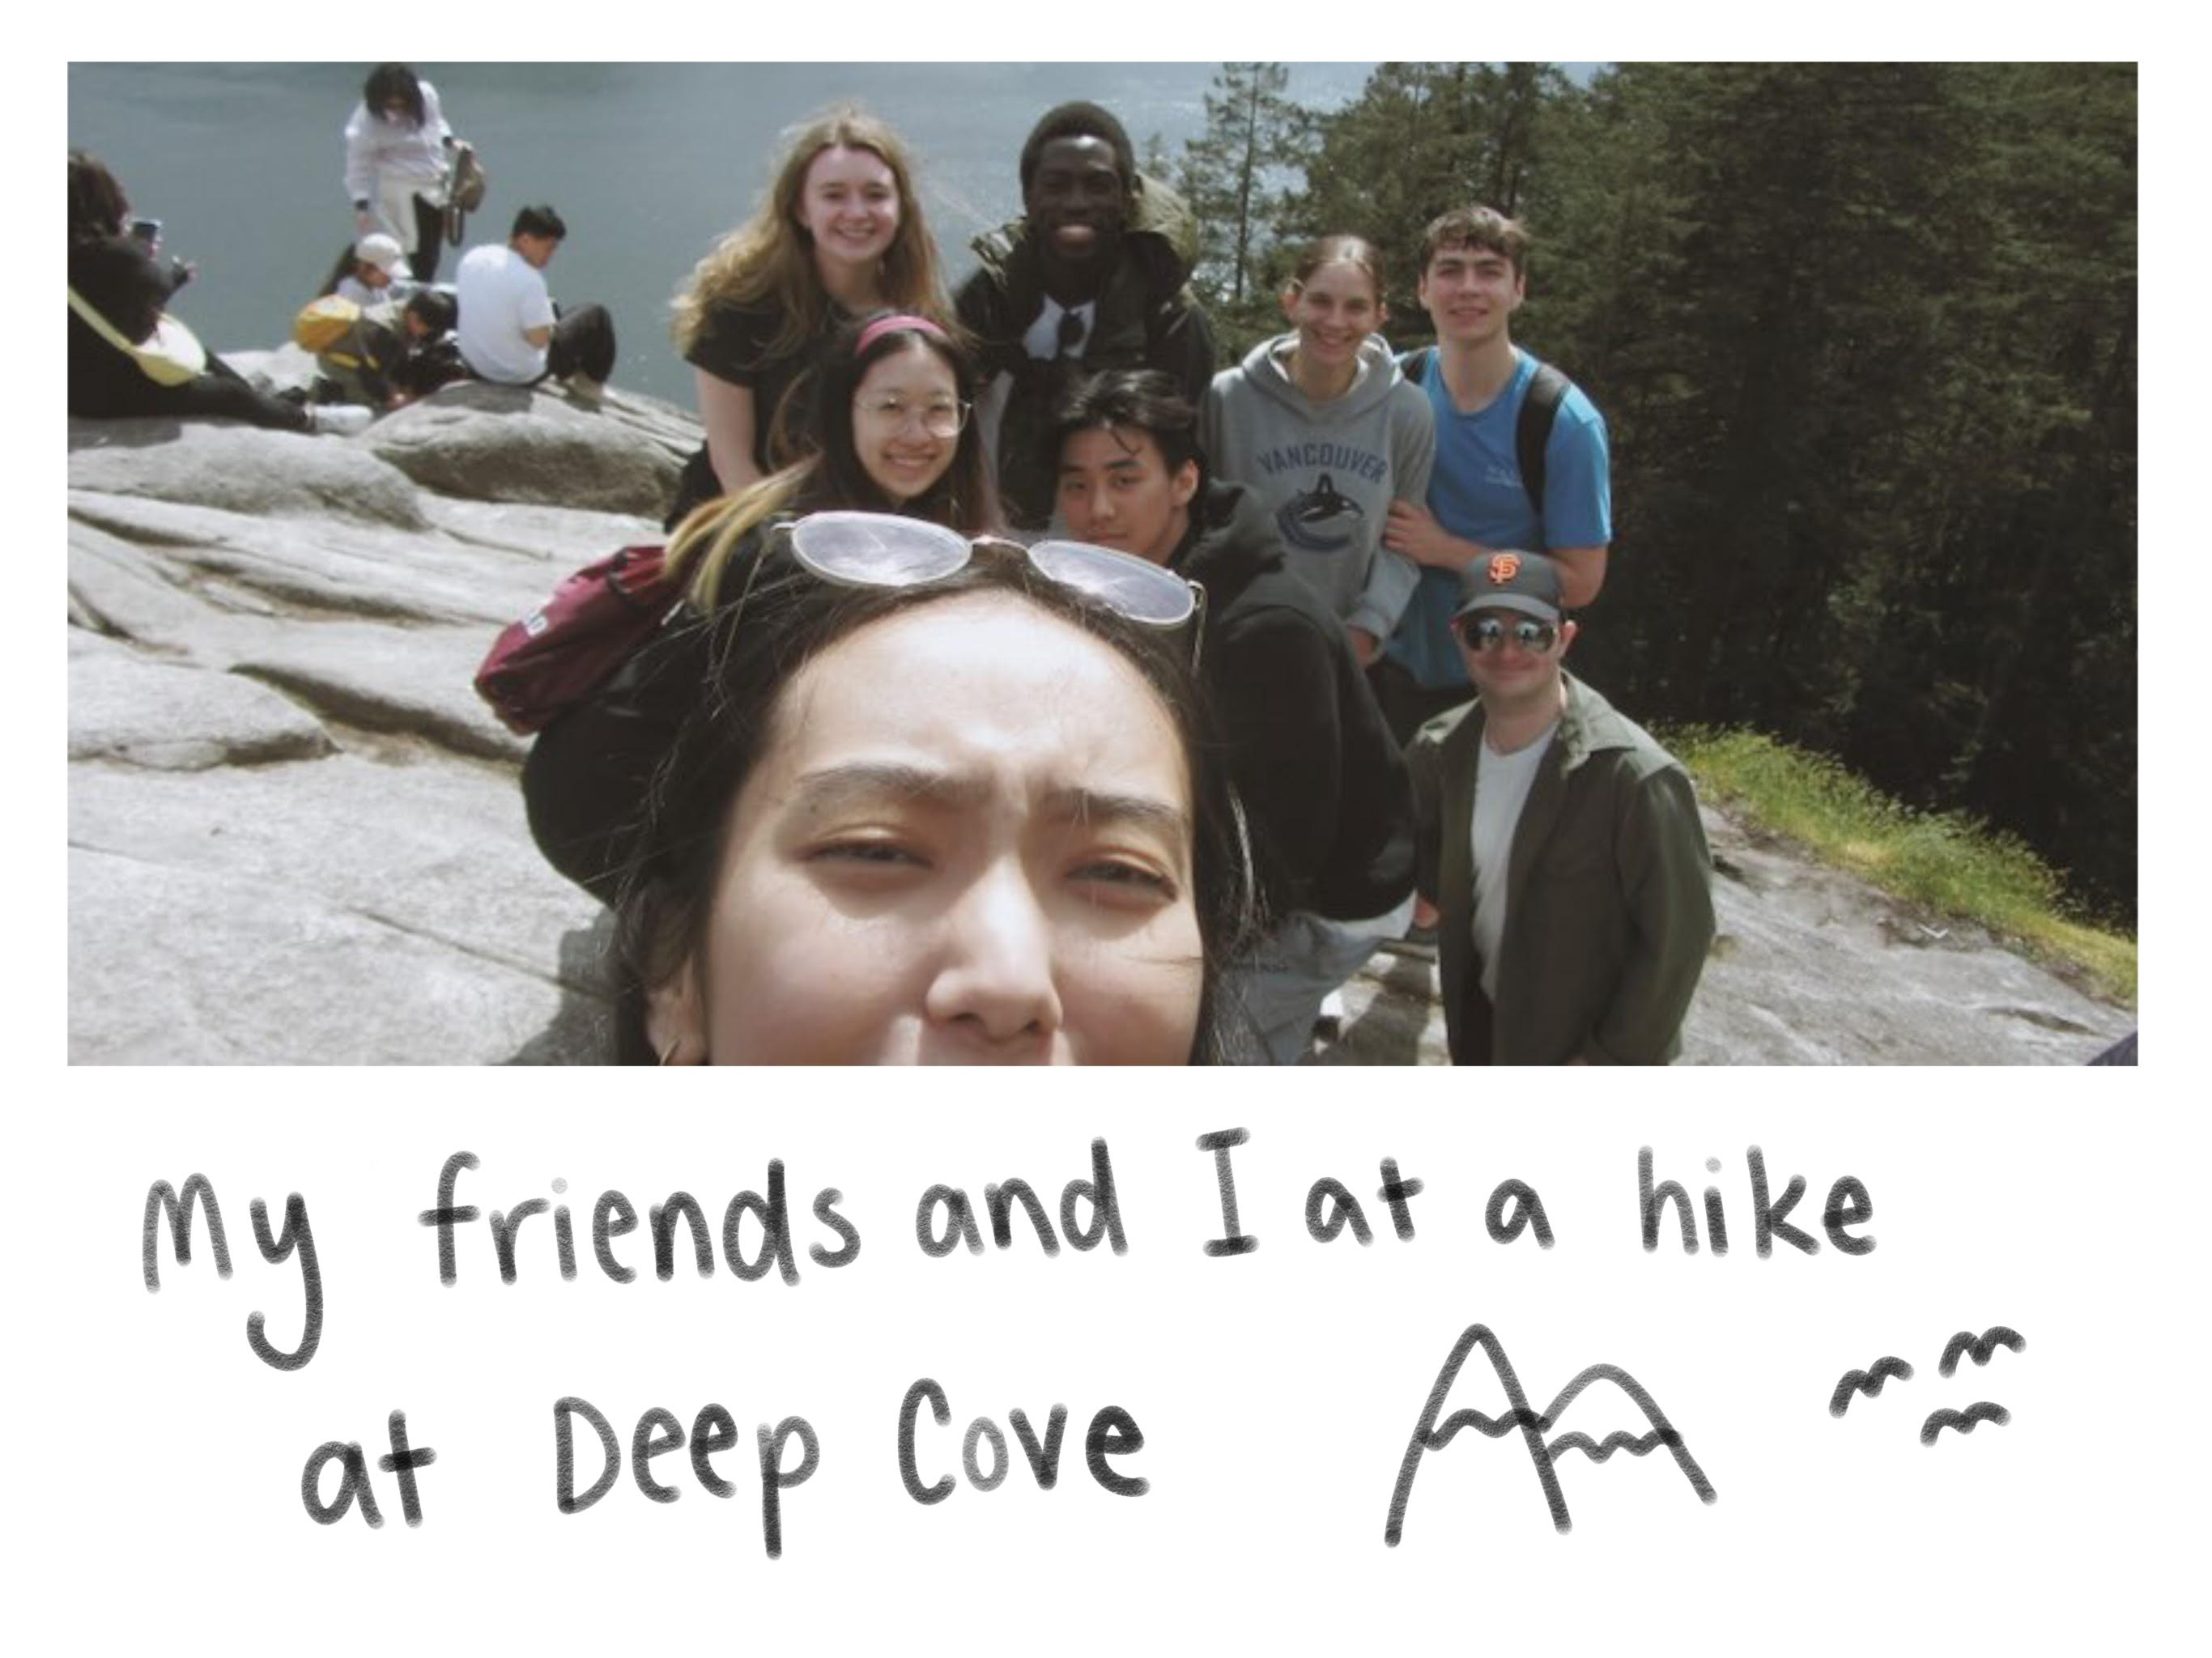 VANCOUVER
SF
My friends and I at a hike
at Deep Cove